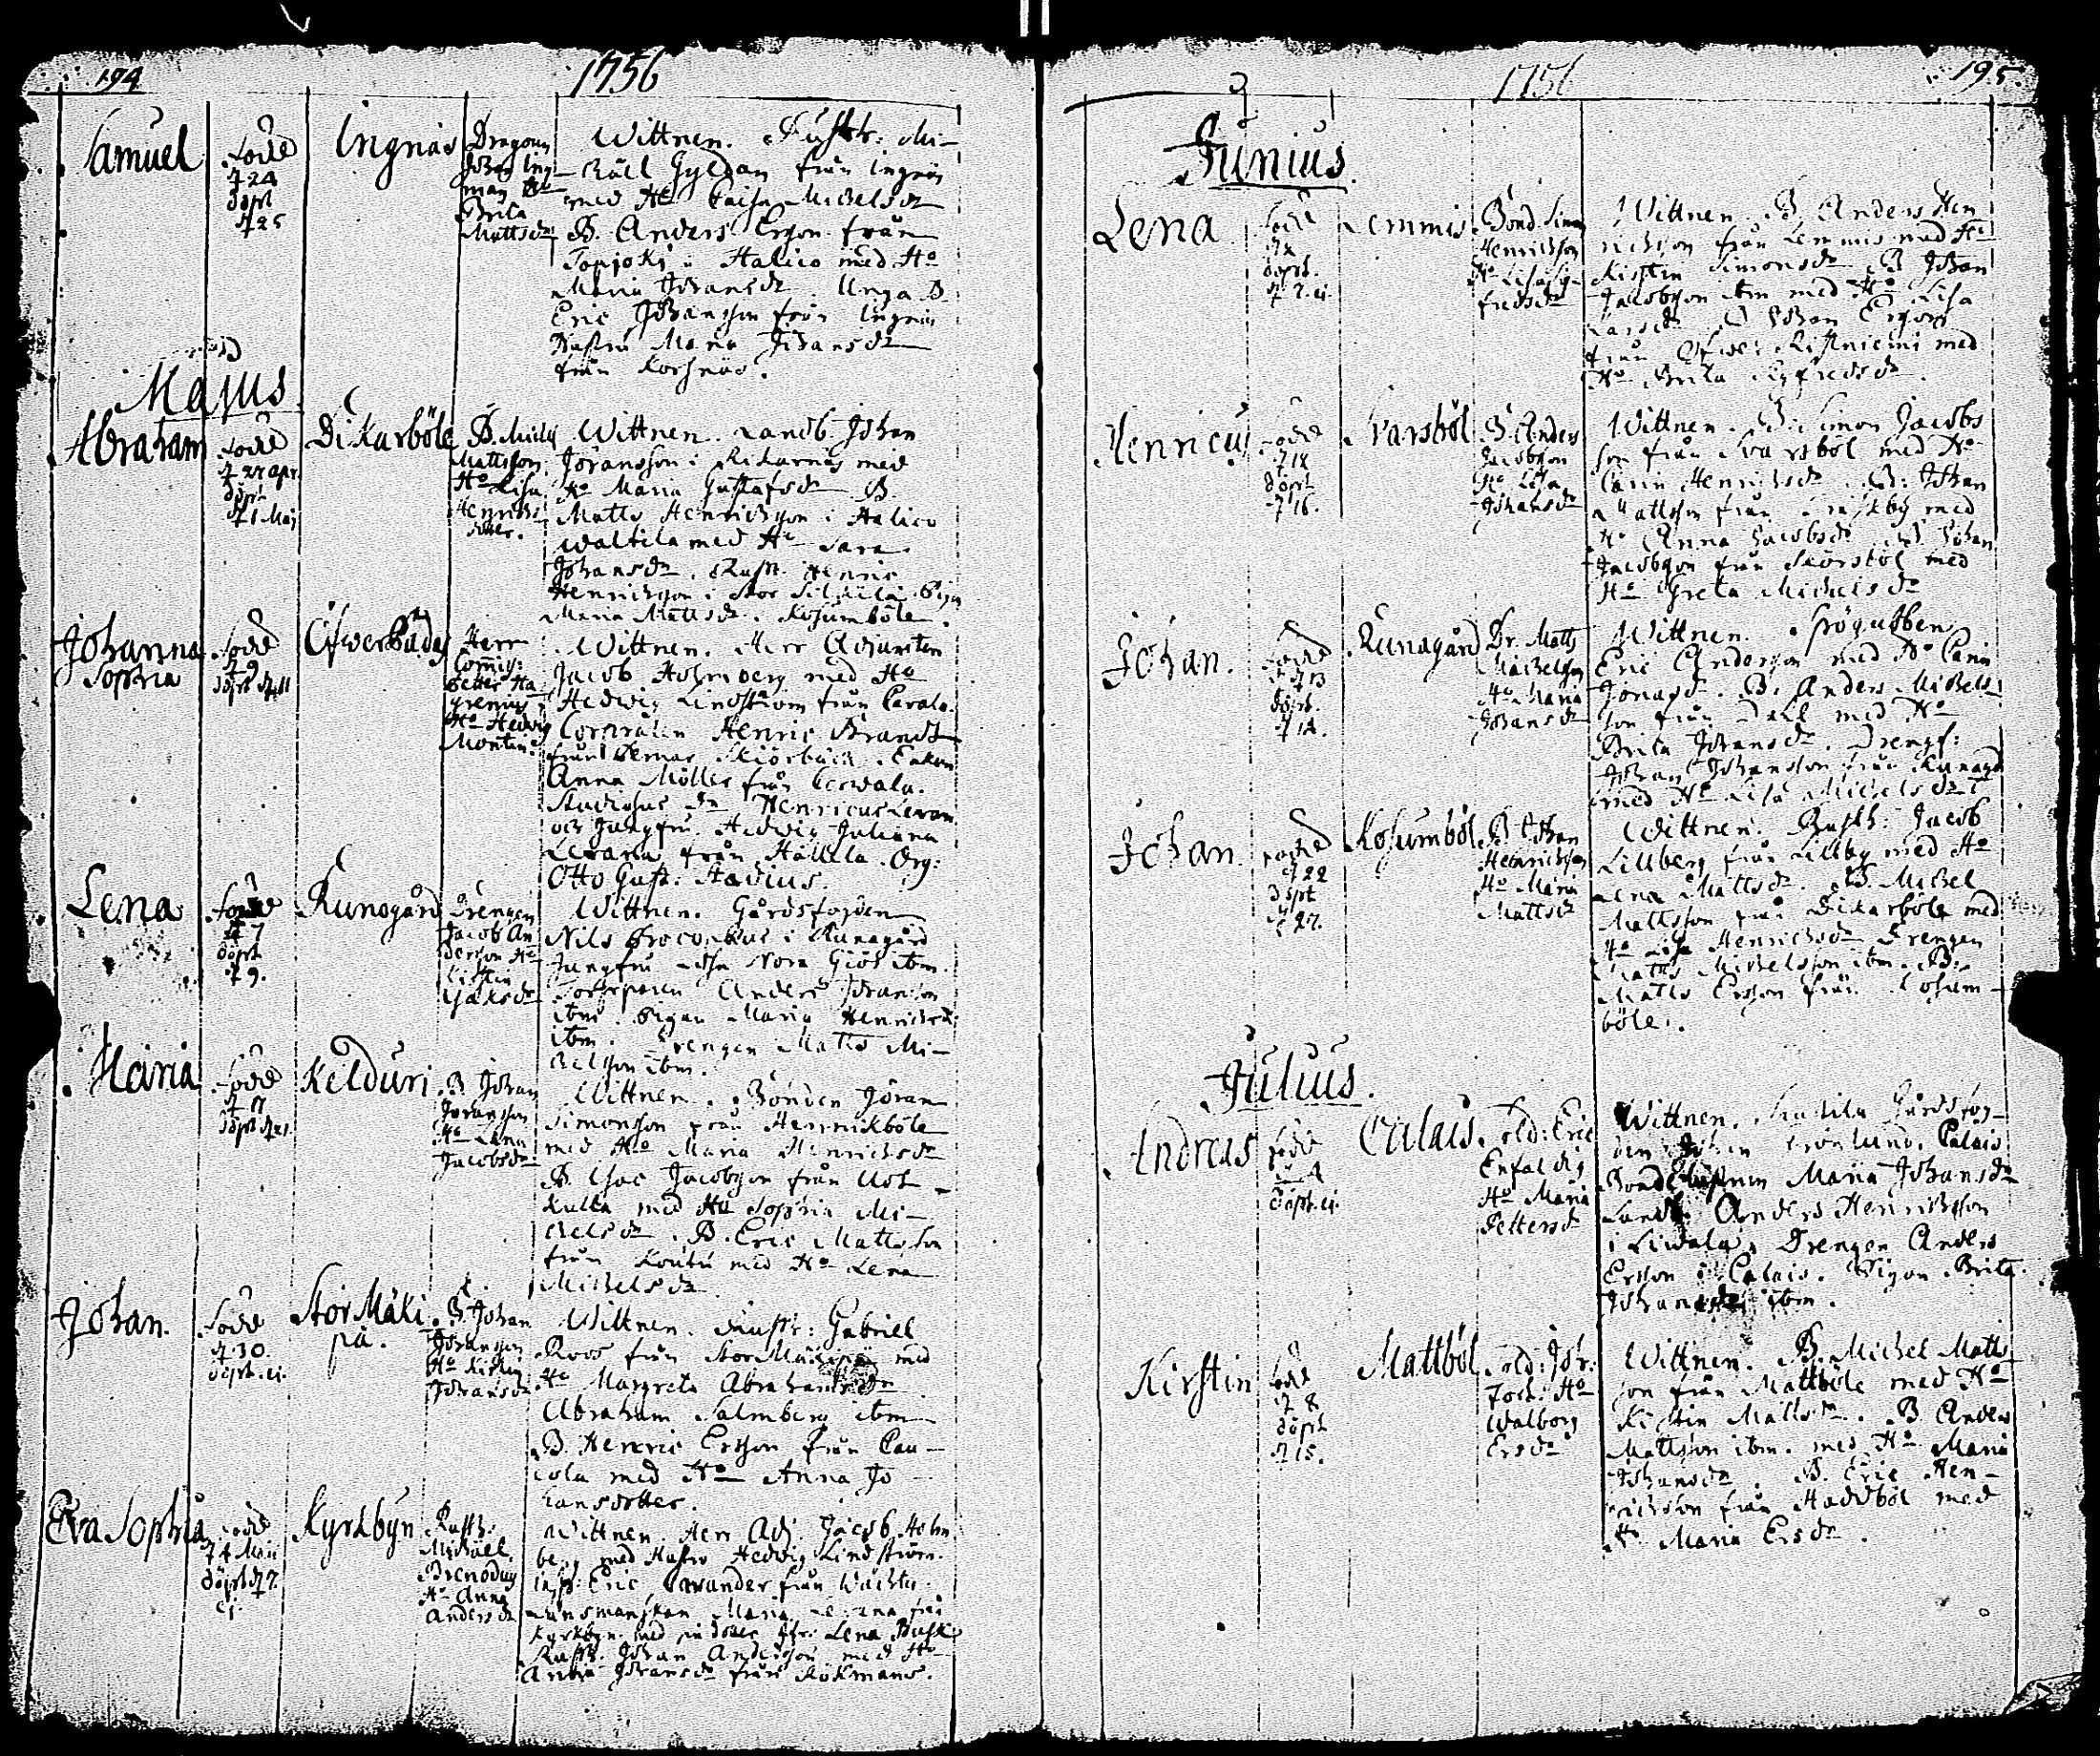 194
1756
Samuel
Födde
d 24
döpt
d 25
Ingnäs
Dragoun
Johan Ing
man Ho
Brita
Mattsdr
Wittnen. Rustr: Mi-
chäll Gyldan från Ingnäs
med Ho Caisa Michelsdr
B. Anders Ersson från
Topjoki i Haliko med Ho
Maria Johansdr. Unga B.
Eric Johansson från Ingnäs
Hustru Maria Johansdr
från Korsnäs.
Majus
Abraham
Födde
d 27 apr.
döpt
d 1 Maj
Dikarböle
B. Michel
Mattsson
Ho Lisa
Henrichs
dotter.
Wittnen. Landb. Johan
Jöransson i Rikarnäs med
Ho Maria Gustafsdr B.
Matts Henrichsson i Haliko
Waltila med Ho Sara
Johansdr. Rust. Henric
Henrichsson i Stor
Maria Mattsdr. Kosumböle.
Johanna
Sophia
Födde
d 9
döpt d 11
Öfwerkulla
Herr
Comis:
Peter Ha
grenius
Ho Hedvig
Montin.
Wittnen. Herr Adjuncten
Jacob Holmberg med Ho
Hedwig Lindström från
Corpralen Henric Brandt
från Pernar Enkan
Anna Möller från
Studiosus Dn Henricus Levan
och Jungfru Hedwig Juliana
Levana från Häkkila. Org:
Otto Gust: Stadius.
Lena
Födde
d 7
döpt
d 9.
Runogård
Drengen
Jacob An
dersson Ho
Kirstin
Wittnen. Gårdsfogden
Nils Procopæus i Runagård
Jungfru Lisa Nora ibm.
Torparen Anders Johansson
ibm. Pigan Maria Henrichsdr
ibm. Drengen Matts Mi-
chelsson ibm.
Maria
Födde
d 17
döpt d 21
Kelduri
B. Johan
Johansson
Ho Lena
Jacobsdr
Wittnen. Bonden Jöran
Simonsson från Hennikböle
med Ho Maria Henrichsdr
B. Isac Jacobsson från
Kulla med Ho Sophia Mi-
chelsdr. B. Eric Mattsson
från Koutu med Ho Lena
Michelsdr
Johan.
Födde
d 30.
döpt. ej.
Stor Mäki
pä.
B. Johan
Johansson
Ho Kirstin
Johansdr
Wittnen. Rustr: Gabriel
Roos från Stor Mäkipä med
Ho Margreta Abrahamsdr
Abraham Salmberg ibm
B. Henric Ersson från Cau-
cola med Ho Anna Jo-
hansdotter.
Eva Sophia
Födde
d 4 Maii
döpt d 7.
ej.
Kyrkbyn
Rustr.
Michael
Ho Anna
Andersdr
Wittnen. Herr Adj. Jacob Holm
berg med Hustru Hedwig Lindström.
insp: Eric från
Länsmanskan Maria Levana från
Kyrkbyn med sin dotter Jfr: Lena
Rustr. Johan Andersson med Ho
Anna Johansdr från Rökmans.
195
1756
Junius
Lena
Födde
döpt.
Lemmis
Bond. Simon
Henrichsson
Ho Lisa Sig-
fredsdr
Wittnen. B. Anders Hen
richsson från Lemmis med Ho
Kirstin Simonsdr. B Johan
Jacobsson ibm med Ho Lisa
Larsdr B Johan Ersson
från Öfwer Ristniemi med
Ho Brita Sigfredsdr
Henricus
Födde
d 14
döpt
d 16.
Svarsböl
B. Anders
Jacobsson
Ho Lisa
Johansdr
Wittnen. B. Simon Jacobs
son från Svarsböl med Ho
Carin Henrichsdr. B: Johan
Mattsson från med
Ho Anna Jacobsdr B Johan
Jacobsson från Skörsböl med
Ho Greta Michelsdr
Johan.
Födde
d 13
döpt.
d 14.
Runagård
Dr. Matts
Michelsson
Ho Maria
Johansdr
Wittnen. Frögubben
Eric Andersson med Ho Carin
Jonasdr. B. Anders Michels
son från Dahl med Ho
Brita Johansdr. Dreng:
Johan Johansson från Runagd
med Ho Lisa Michelsdr
Johan.
Födde
d 22
döpt
d 27.
Kosumböl
B Johan
Henrichsson
Ho Maria
Mattsdr
Wittnen. Rusth: Jacob
Lillberg från Lillby med Ho
Lena Mattsdr. B. Michel
Mattsson från Dikarböle med
Ho Lisa Henrichsdr Drengen
Matts Michelsson ibm. B.
Matts Ersson från Kosum-
böle.
Julius.
Andreas
Födde
d 4
döpt. ej.
Calais
Sold: Eric
Enfaldig
Ho Maria
Pettersdr
Wittnen. Gårdsfog-
den Johan Grönlund. Calais
Bond Hustrun Maria Johansdr
Landb. Anders Henrichsson
i Liwala. Drengen Anders
Ersson i Calais. Pigan Brita
Johansdr ibm.
Kirstin
Född
d 8
döpt
d 15.
Mattböl
Sold: Joh:
Ho
Walborg
Ersdr
Wittnen. B. Michel Matts
son från Mattböle med Ho
Kirstin Mattsdr. B. Anders
Mattsson ibm. med Ho Maria
Johansdr. B. Eric Hen-
richsson från Haddböl med
Ho Maria Ersdr.